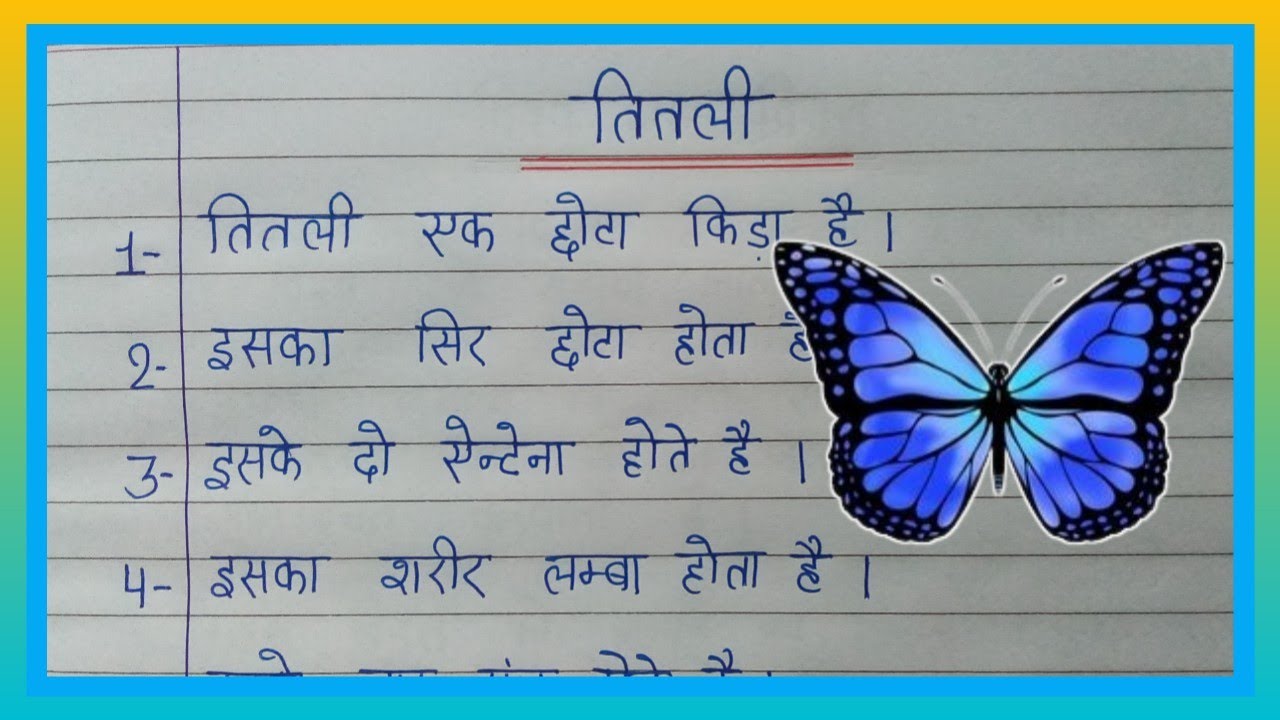 तितली
1- तितली एक छोटा किड़ा है।
2- इसका सिर छोटा होता है
3- इसके दो ऐन्टेना होते है ।
4- इसका शरीर लम्बा होता है ।